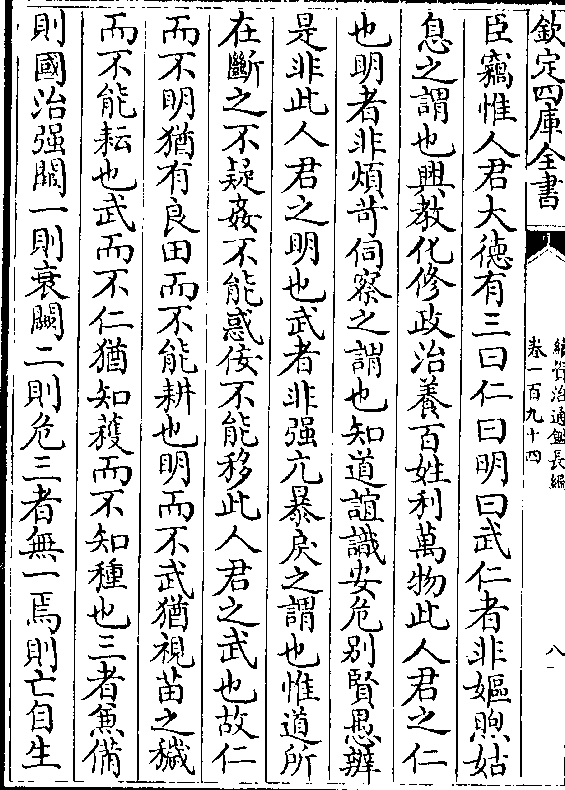 欽定四庫全書
續資治通鑑長編
卷一百九十四
八
臣竊惟人君大德有三曰仁曰明曰武仁者非嫗煦姑
息之謂也興教化修政治養百姓利萬物此人君之仁
也明者非煩苛伺察之謂也知道誼識安危别賢愚辧
是非此人君之明也武者非强亢暴戾之謂也惟道所
在斷之不疑姦不能惑佞不能移此人君之武也故仁
而不明猶有良田而不能耕也明而不武猶視苗之穢
而不能耘也武而不仁猶知穫而不知種也三者兼備
則國治强闕一則衰闕二則危三者無一焉則亡自生